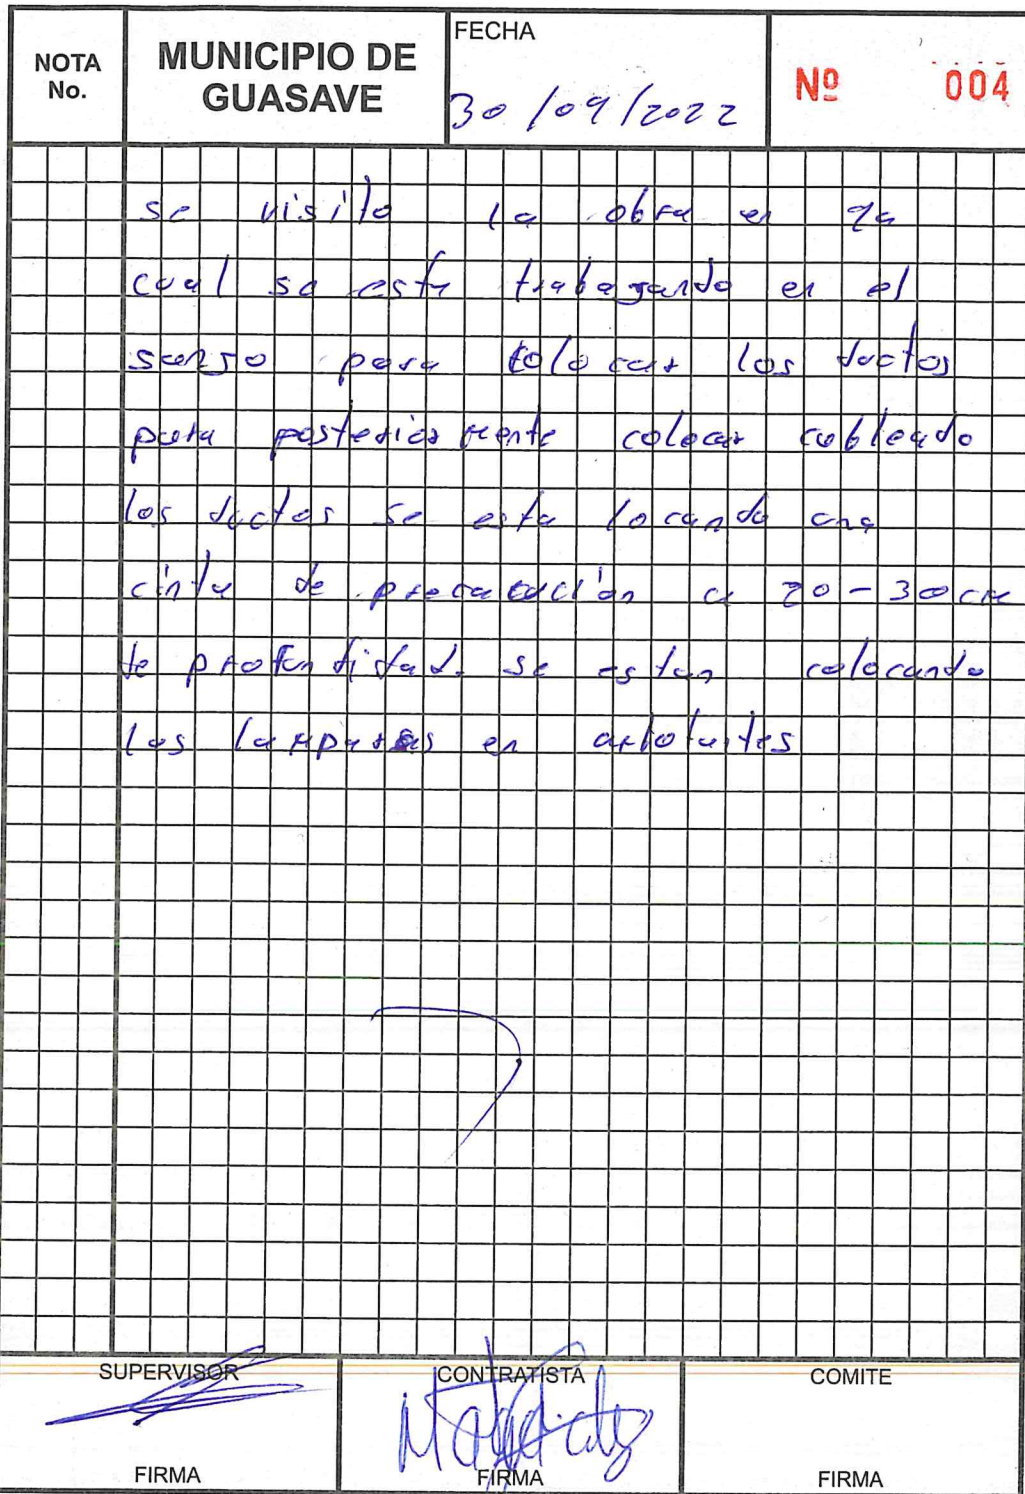 NOTA No.
MUNICIPIO DE GUASAVE
FECHA
30/09/2022
Nº 004
se visito la obra en la
cual se esta trabajando en el
para colocar los ductos
para posteriormente colocar cableado
los ductos se esta locando una
cinta de precaución a 20-30 cm
de profundidad. se estan colocando
las lamparas en arbotantes
SUPERVISOR
FIRMA
CONTRATISTA
FIRMA
COMITE
FIRMA